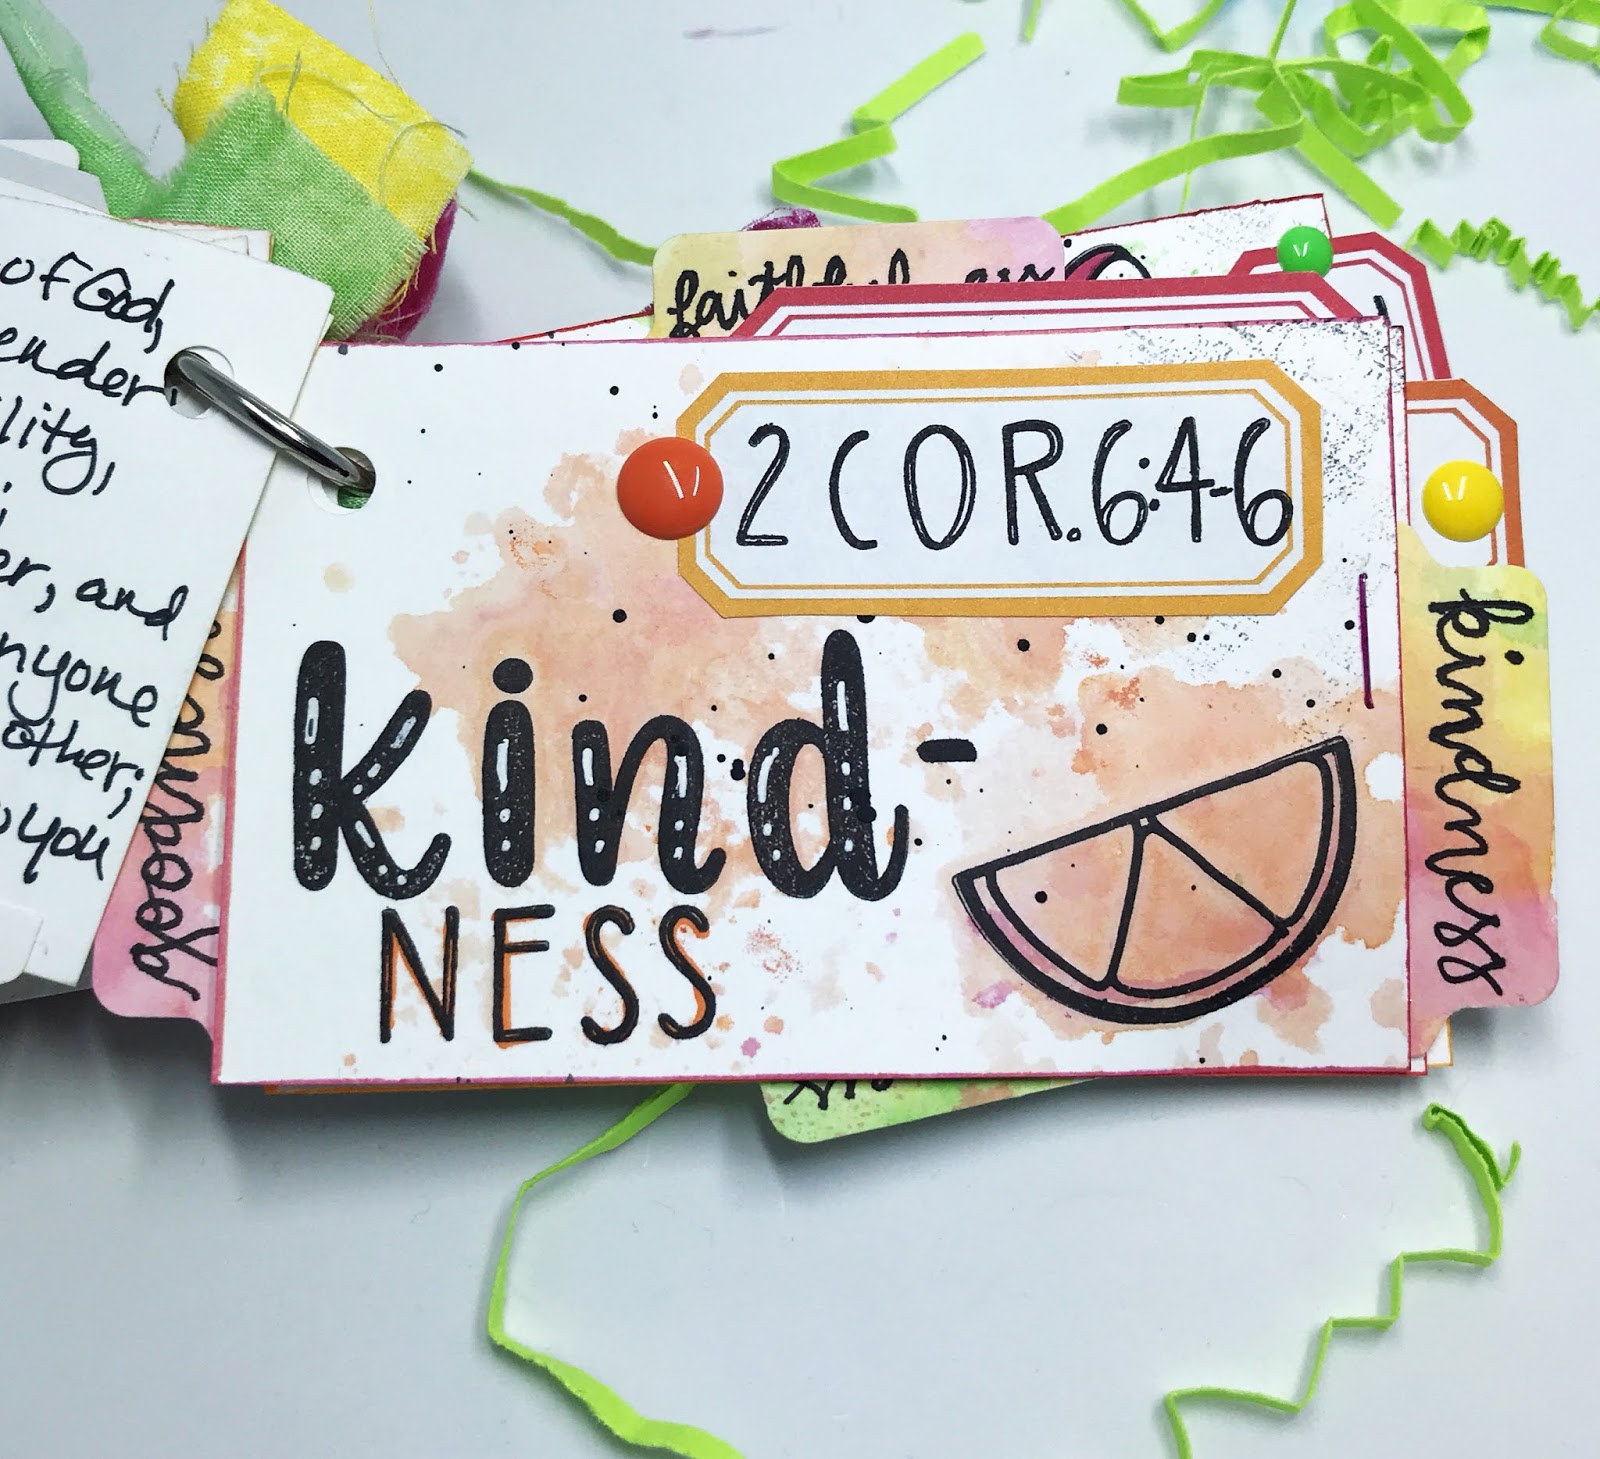 of God,
lity,
and
nyone
other;
you
goodness
faithfulness
2 COR. 6:4-6
kind-
NESS
kindness